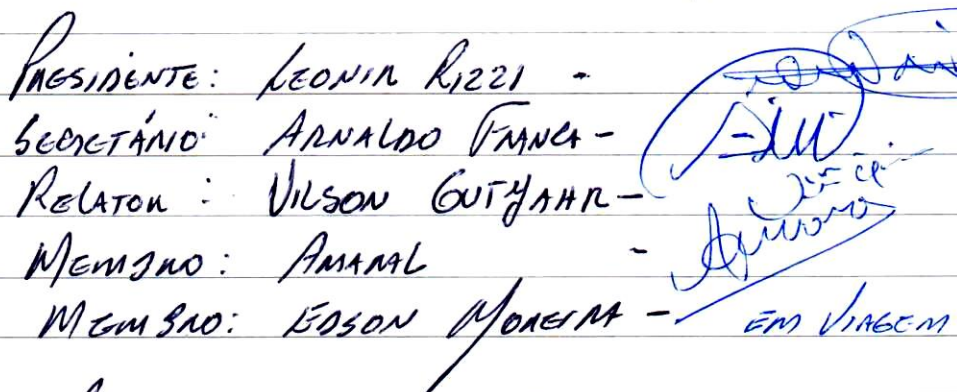 PRESIDENTE: LEONIR RIZZI -
SECRETÁRIO: ARNALDO FRANCA -
RELATOR: VILSON GUTYAHR -
MEMBRO: AMARAL -
MEMBRO: EDSON MOREIRA - EM VIAGEM